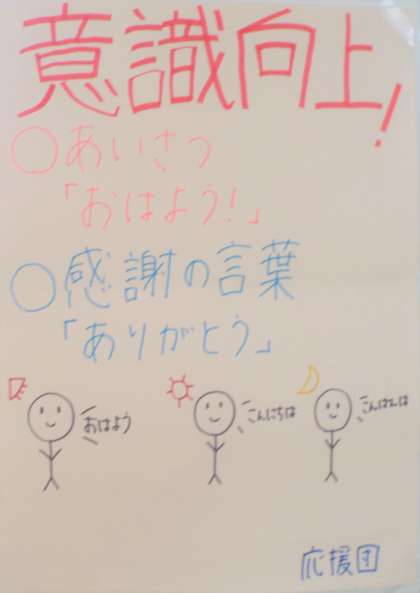 意識向上!
○あいさつ
「おはよう!」
○感謝の言葉
「ありがとう」
おはよう
こんにちは
こんばんは
応援団